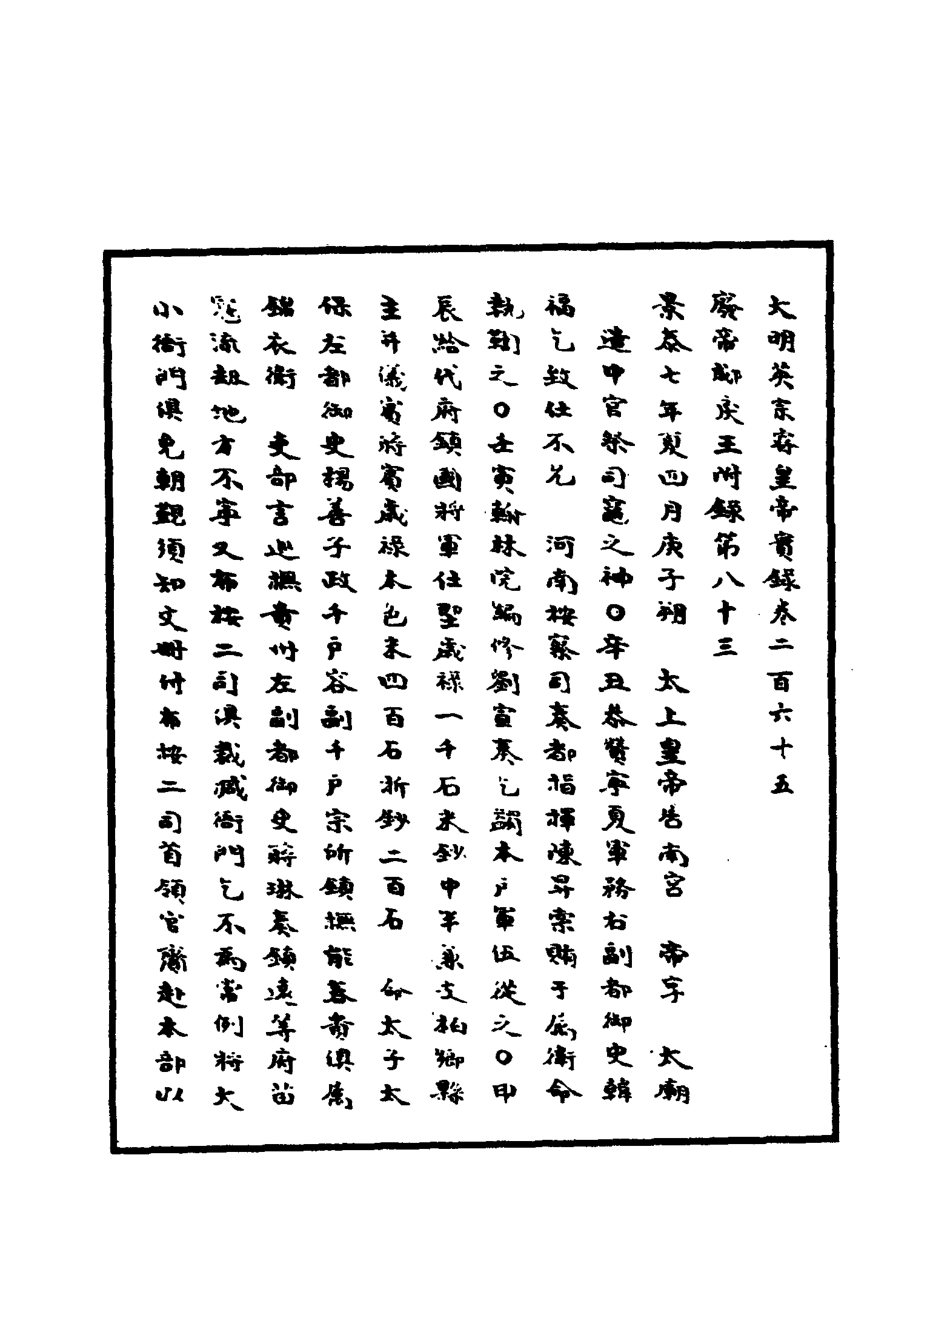 大明英宗睿皇帝實錄卷二百六十五
廢帝郕戾王附錄第八十三
景泰七年夏四月庚子朔　太上皇帝居南宮　帝享　太廟
遣中官祭司竈之神○辛丑恭贊寧夏軍務右副都御史韓
福乞致仕不允　河南按察司奏都指揮陳昇索賄于属衛命
執鞫之○壬寅翰林院編修劉宣奏乞蠲本戶軍伍從之○甲
辰給代府鎮國將軍仕𡎺歲祿一千石米鈔中半兼支柏鄉縣
主并儀賓蔣賓歲祿本色米四百石折鈔二百石　命太子太
保左都御史楊善子政千戶容副千戶宗所鎮撫能春貴俱属
錦衣衛　吏部言巡撫貴州左副都御史蔣琳奏鎮遠等府苗
寇流刼地方不寧又布按二司俱裁減衙門乞不為常例將大
小衙門俱免朝覲須知文冊付布按二司首領官齎赴本部以